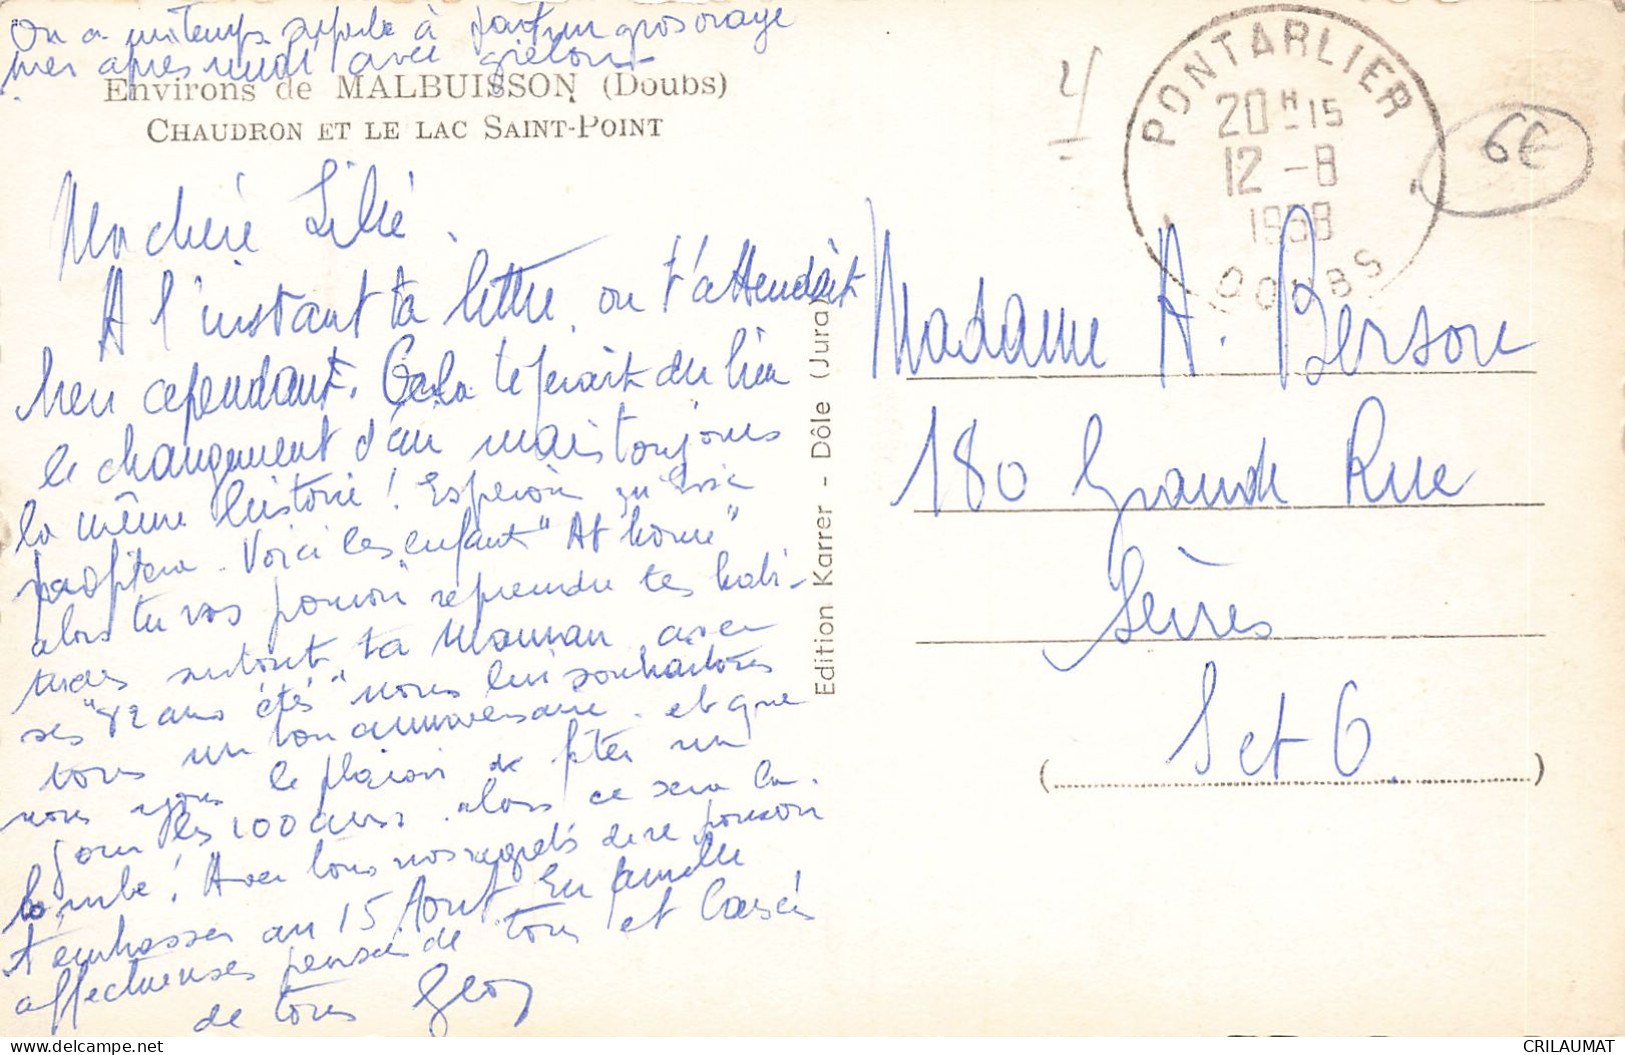 On a un temps superbe à part un gros orage
hier après midi avec grêlons
Environs de MALBUISSON (Doubs)
CHAUDRON ET LE LAC SAINT-POINT
Ma chère Lilie.
A l'instant ta lettre, on t'attendait
bien cependant. Cela te ferait du bien
le changement d'air mais toujours
la même histoire ! Espérons qu'
profitera. Voici les enfants "At home"
alors tu vas pouvoir reprendre tes habi-
tudes surtout ta Maman avec
ses "82 ans étés" nous lui souhaitons
tous un bon anniversaire. et que
nous ayons le plaisir de fêter un
jour les 100 ans. alors ce sera la
bombe ! Avec tous nos regrets de ne pouvoir
t'embrasser au 15 Août. En famille
affectueuses pensées de tous et baisers
de tous Geo
Edition Karrer - Dôle (Jura)
PONTARLIER
20 H 15
12 -8
1958
DOUBS
6€
Madame A. Berson
180 Grande Rue
Sèvres
S et O.
CRILAUMAT